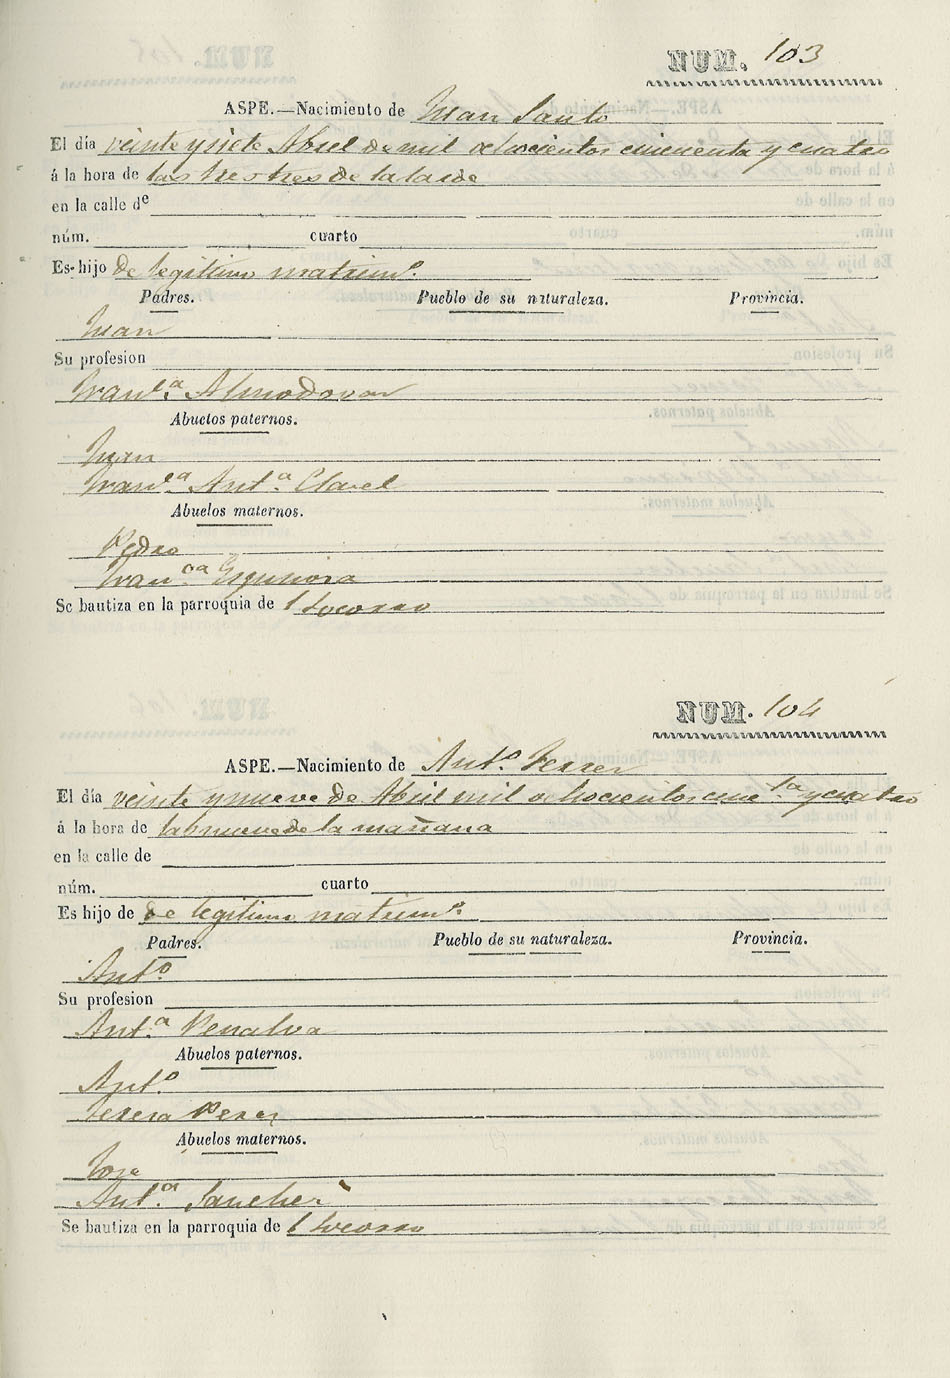 NUM. 103
ASPE.—Nacimiento de Juan Santo
El día veinte y siete Abril de mil ochocientos cincuenta y cuatro
á la hora de las tres de la tarde
en la calle de
núm. cuarto
Es hijo de legitimo matrimº.
Padres. Pueblo de su naturaleza. Provincia.
Juan
Su profesion
Franca. Almodovar
Abuelos paternos.
Juan
Franca Anta. Clavel
Abuelos maternos.
Pedro
Franca
Se bautiza en la parroquia de l Socorro
NUM. 104
ASPE.—Nacimiento de Antº. Ferrer
El día veinte y nueve de Abril mil ochocientos cincta y cuatro
á la hora de las nueve de la mañana
en la calle de
núm. cuarto
Es hijo de de legitimo matrimº.
Padres. Pueblo de su naturaleza. Provincia.
Antº
Su profesion
Anta. Penalva
Abuelos paternos.
Antº
Teresa Perez
Abuelos maternos.
Jose
Anta. Sanchez
Se bautiza en la parroquia de l Socorro